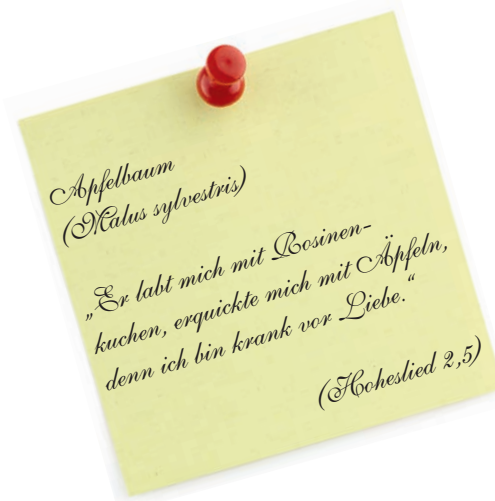 Apfelbaum
(Malus sylvestris)
„Er labt mich mit Rosinen-
kuchen, erquickte mich mit Äpfeln,
denn ich bin krank vor Liebe.“
(Hoheslied 2,5)